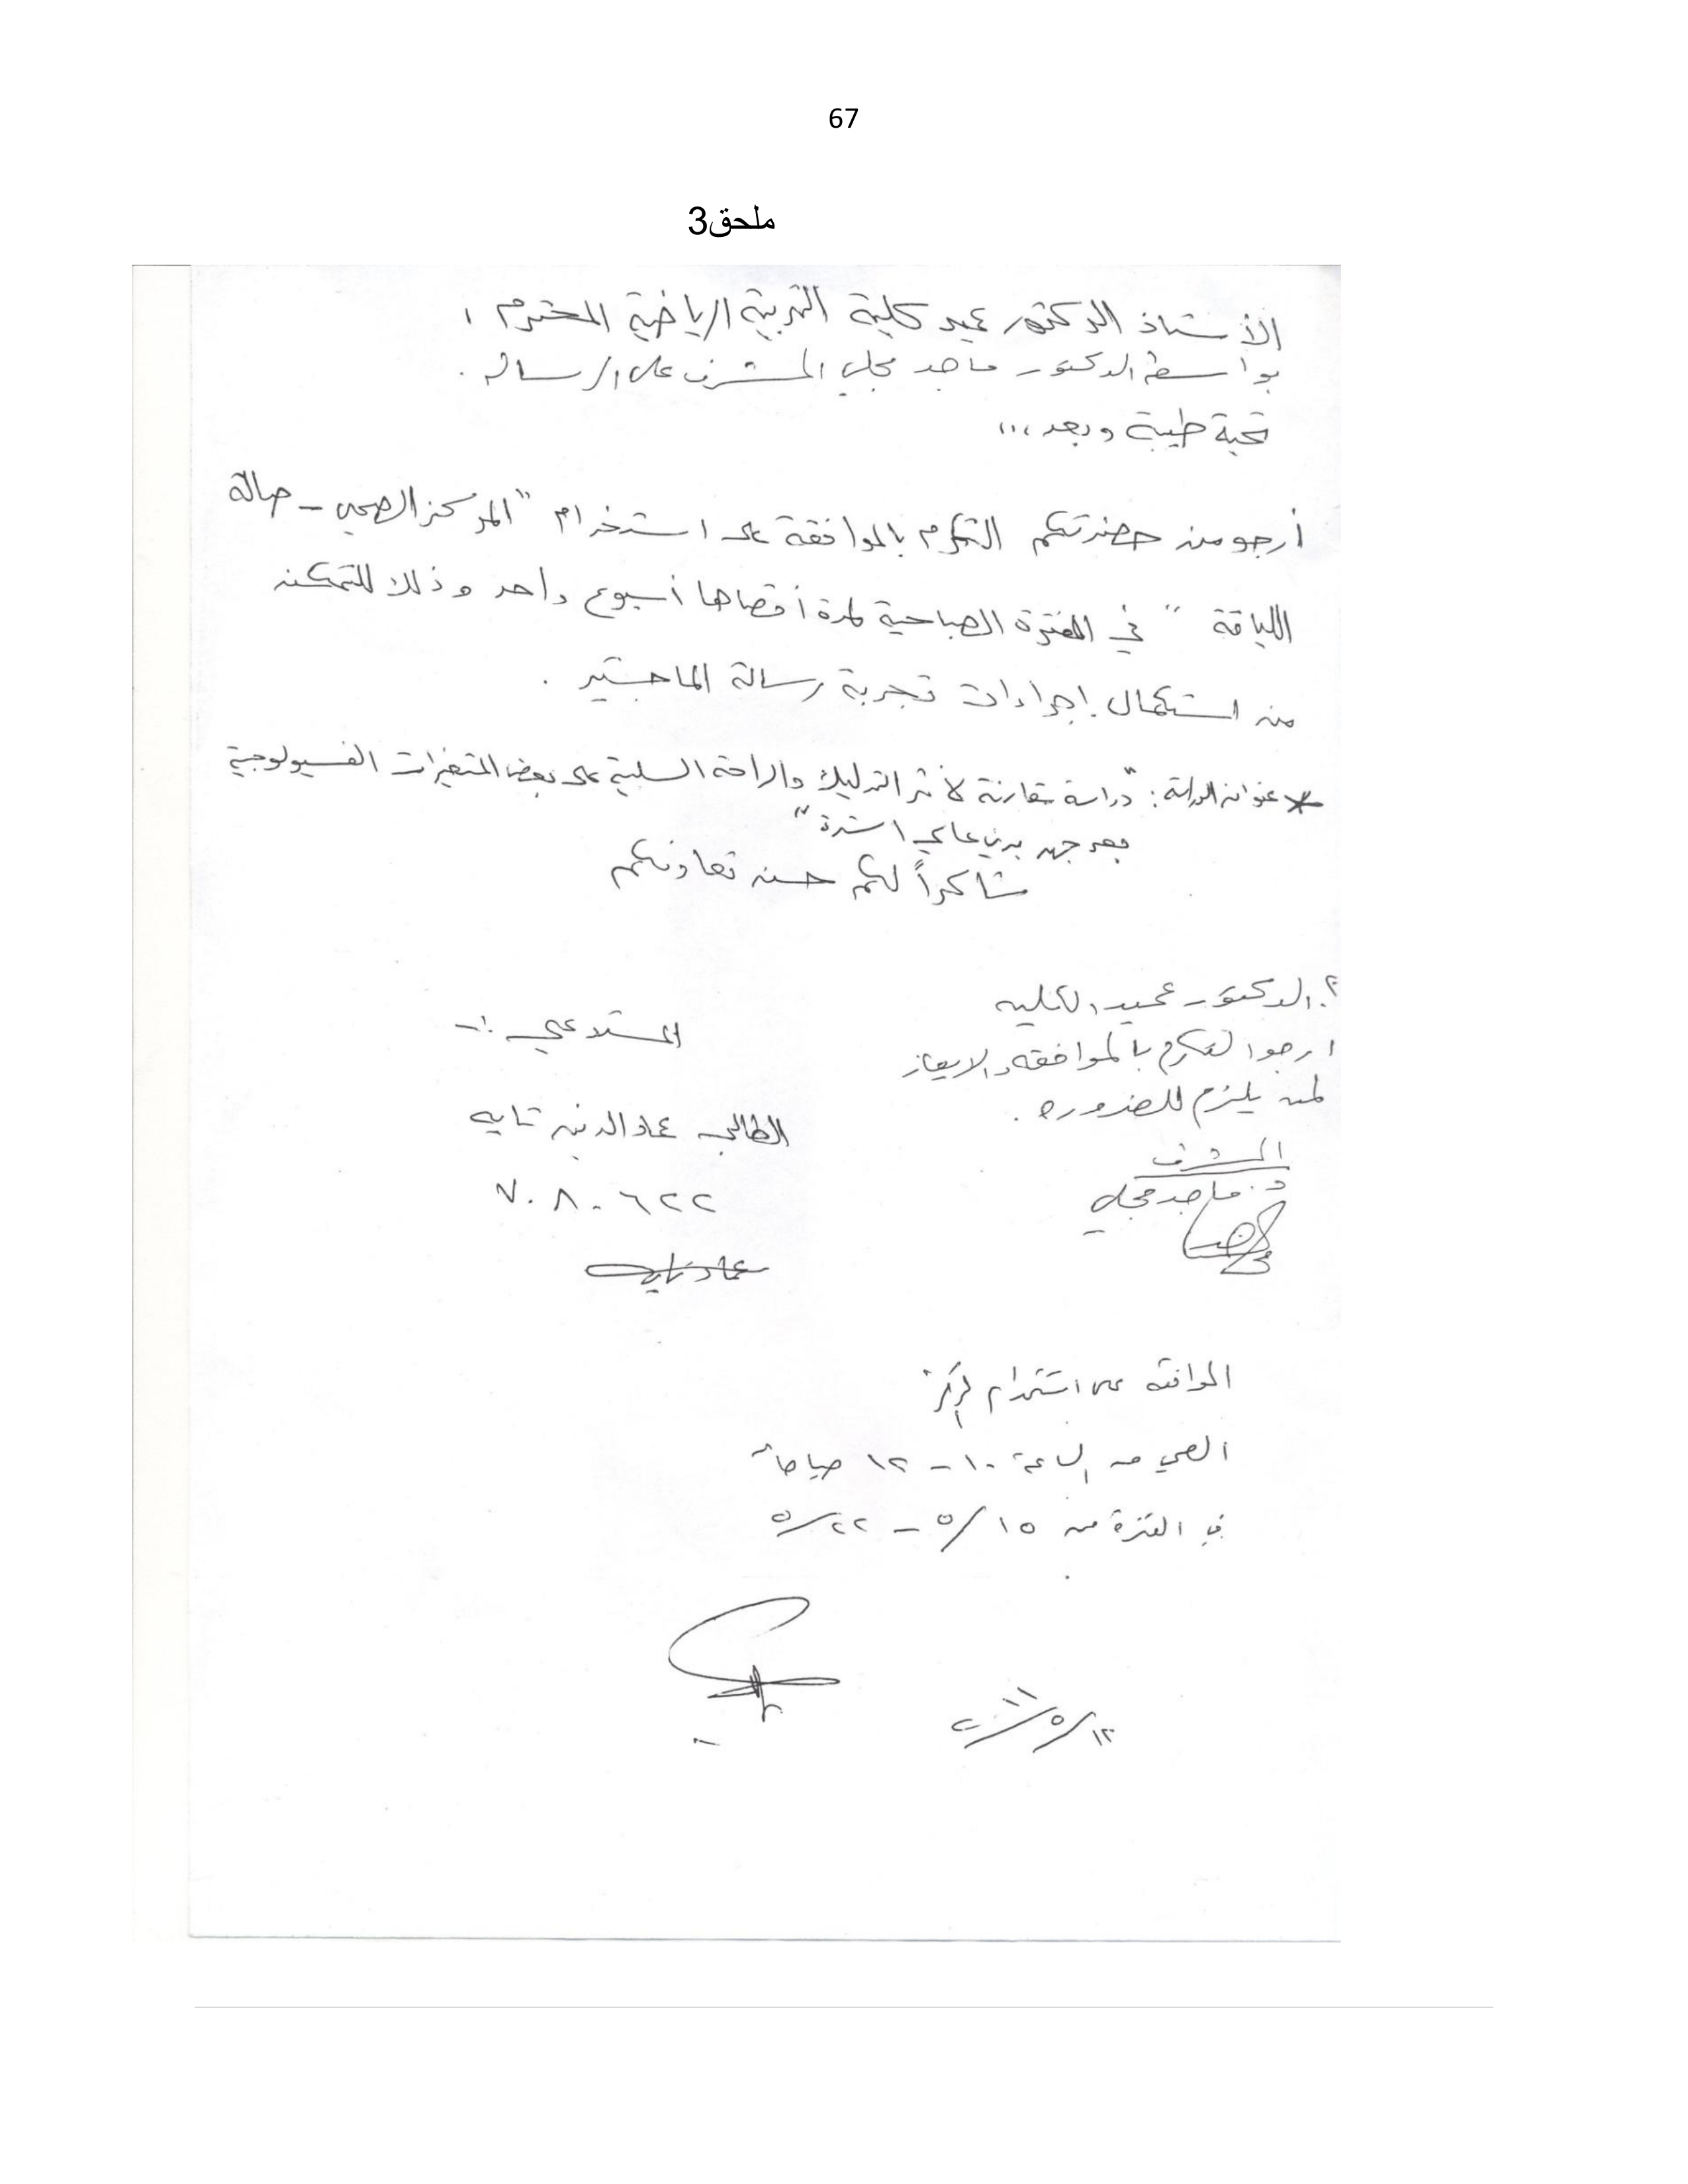 67
ملحق3
الأستاذ الدكتور عميد كلية التربية الرياضية المحترم ،
بواسطة الدكتور ماجد مجلي المشرف على الرسالة .
تحية طيبة وبعد ،،،
أرجو من حضرتكم التكرم بالموافقة على استخدام "المركز الصحي - صالة
اللياقة " في الفترة الصباحية لمدة أقصاها أسبوع واحد وذلك للتمكن
من استكمال إجراءات تجربة رسالة الماجستير .
* عنوان الدراسة : "دراسة مقارنة لأثر التدليك والراحة السلبية على بعض المتغيرات الفسيولوجية
بعد جهد بدني عالي الشدة"
شاكراً لكم حسن تعاونكم
أ. الدكتور عميد الكلية
ارجوا التكرم بالموافقه والايعاز
لمن يلزم للضروره .
المشرف
د. ماجد مجلي
المستدعي :-
الطالب عماد الدين تايه
٧٠٨٠٦٢٢
عماد تايه
الموافقة على استخدام المركز
الصحي من الساعة ١٠ - ١٢ صباحاً
في الفترة من ١٥/٥ - ٢٢/٥
١٢/٥/٢٠١١